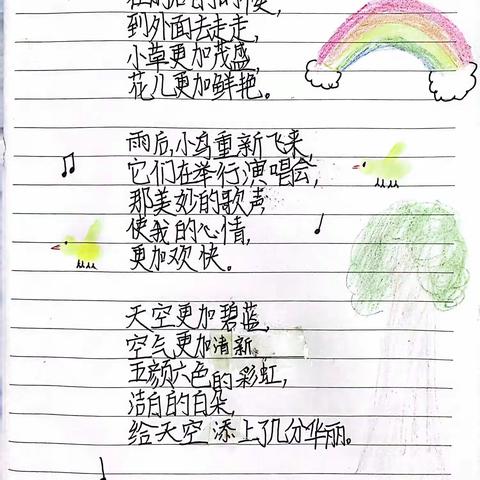 到外面去走走，
小草更加茂盛，
花儿更加鲜艳。
雨后，小鸟重新飞来，
它们在举行演唱会，
那美妙的歌声
使我的心情，
更加欢快。
天空更加碧蓝，
空气更加清新，
五颜六色的彩虹，
洁白的白朵，
给天空添上了几分华丽。